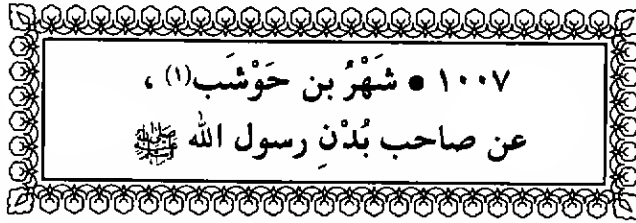 ١٠٠٧ • شَهْرُ بن حَوْشَب(١) ،
عن صاحب بُدْنِ رسول الله ﷺ